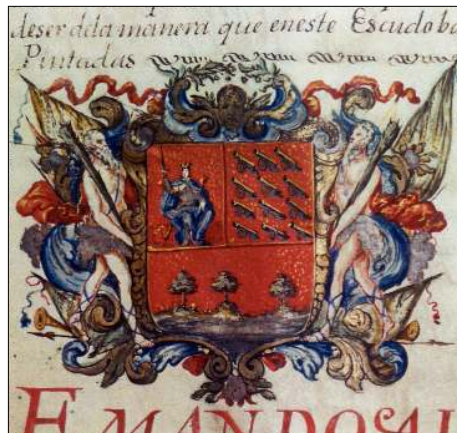 deser dela manera que eneste Escudo ba
Pintadas
E MANDOSAL